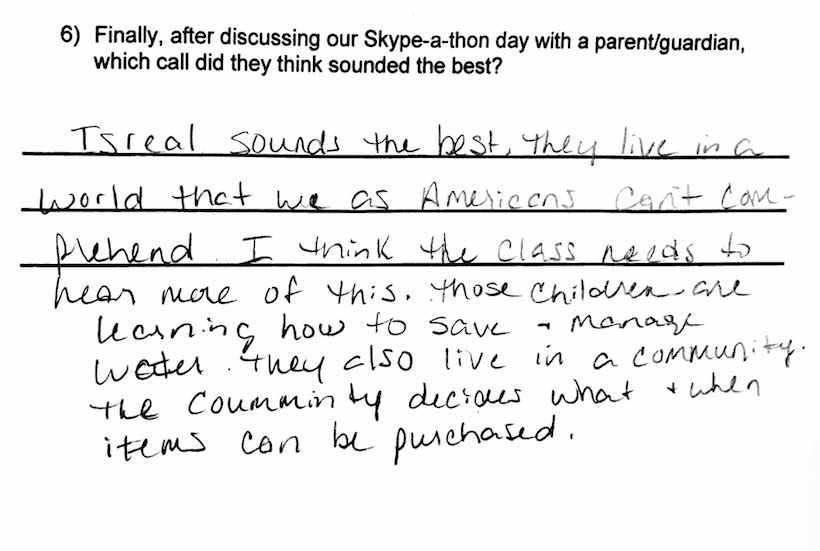 6) Finally, after discussing our Skype-a-thon day with a parent/guardian,
which call did they think sounded the best?
Isreal sounds the best, they live in a
world that we as Americans can't com-
prehend. I think the class needs to
hear more of this. those children are
learning how to save + manage
water. they also live in a community.
the coummin ty decides what + when
items can be purchased.